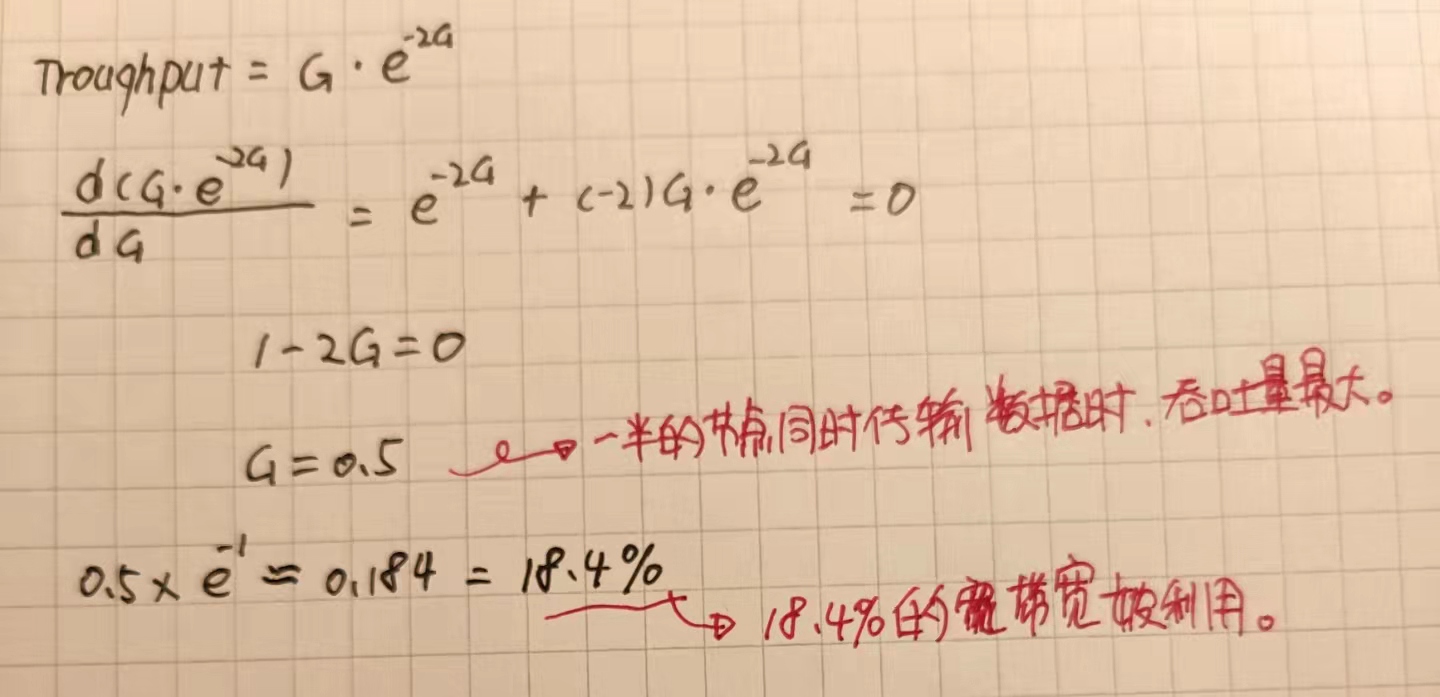 Troughput = G · e^-2G
d(G·e^-2G)/dG = e^-2G + (-2)G·e^-2G = 0
1-2G=0
G=0.5 一半的节点同时传输数据时, 吞吐量最大。
0.5× e^-1 ≈ 0.184 = 18.4%
18.4%的带宽被利用。